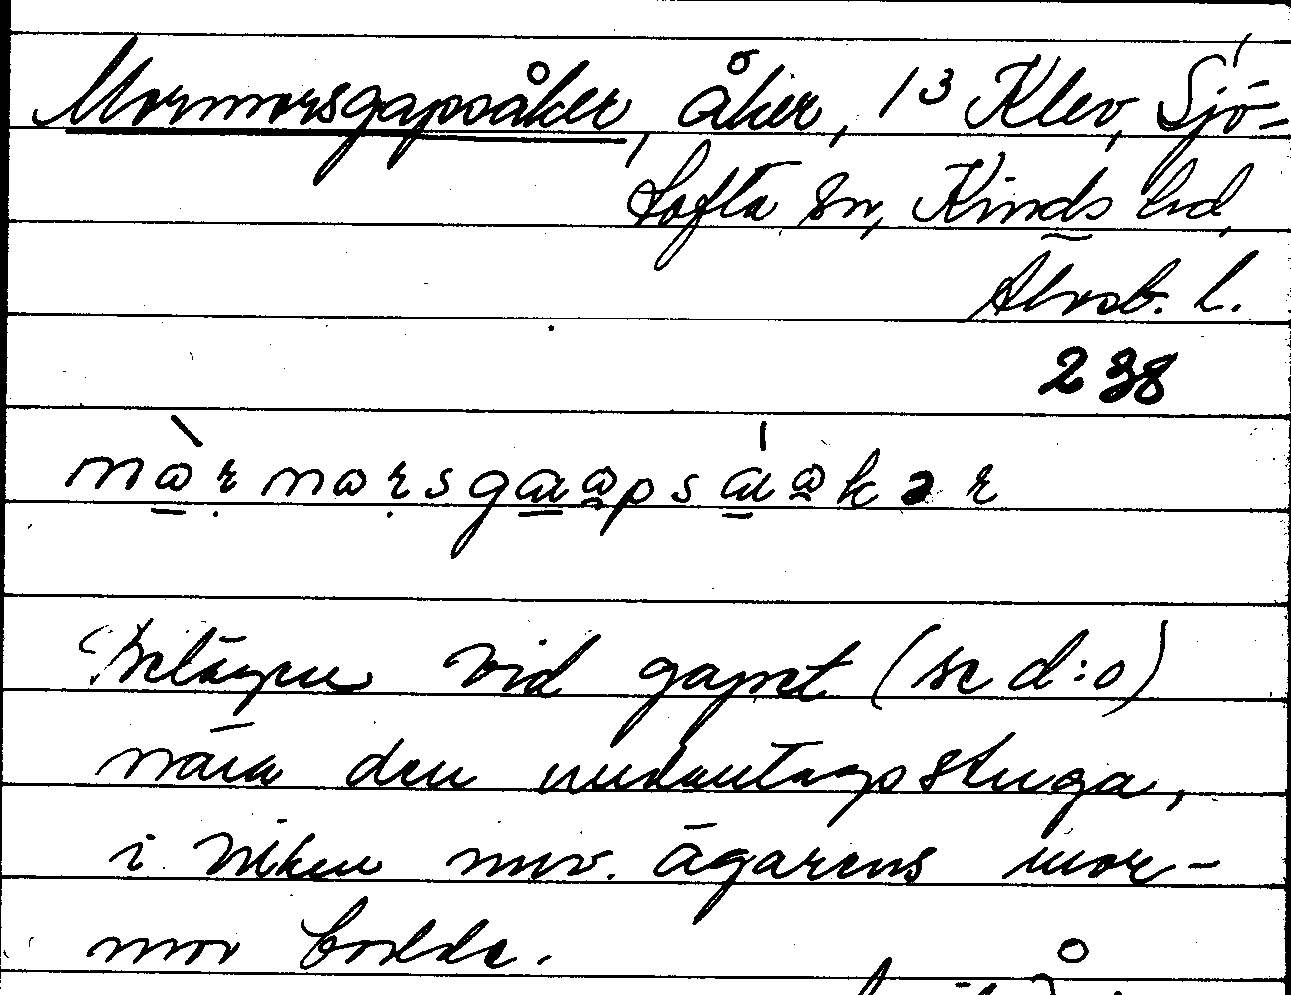 Mormorsgapsåker, åker, 1³ Klev, Sjö-
tofta sn, Kinds hd,
Älvsb. l.
238
mɷ̀rmɷrsgaapsáakər
Belägen vid gapet (se d:o)
nära den undantagsstuga,
i vilken nuv. ägarens mor-
mor bodde.